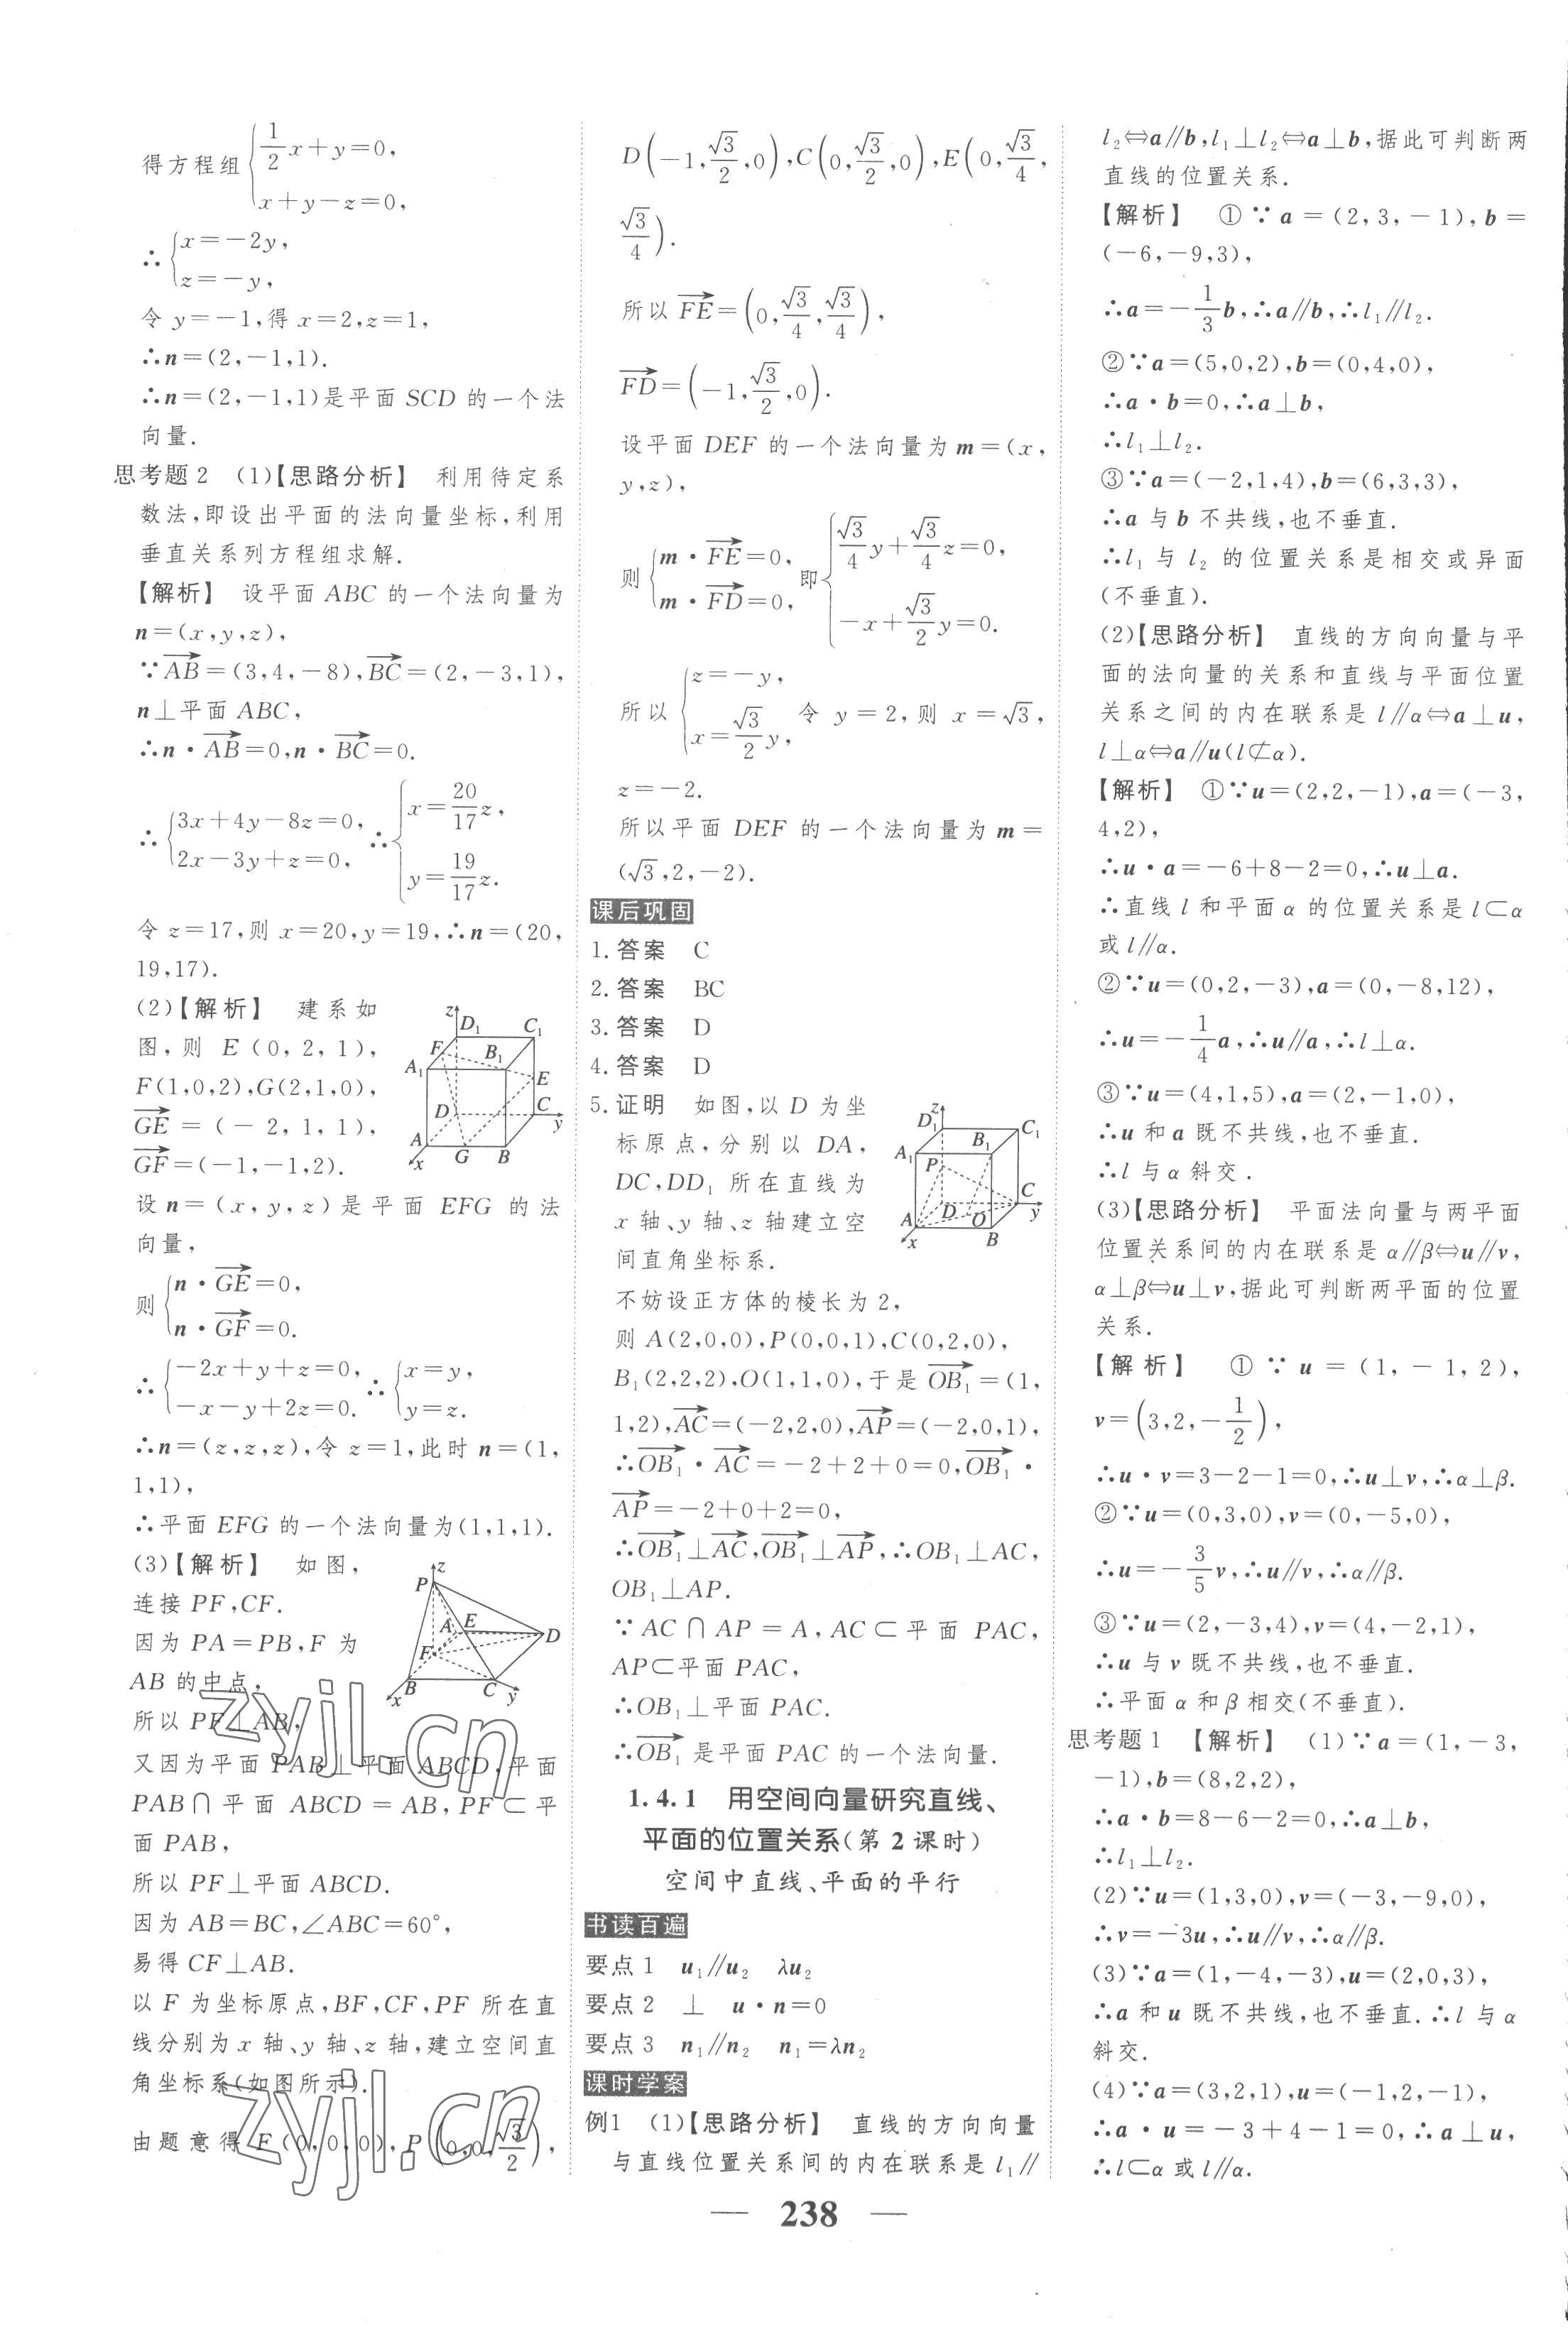 得方程组{1/2x+y=0,
x+y-z=0,
∴{x=-2y,
z=-y,
令 y=-1,得 x=2,z=1,
∴n=(2,-1,1).
∴n=(2,-1,1)是平面 SCD 的一个法
向量.
思考题 2 (1)【思路分析】 利用待定系
数法,即设出平面的法向量坐标,利用
垂直关系列方程组求解.
【解析】 设平面 ABC 的一个法向量为
n=(x,y,z),
∵AB→=(3,4,-8),BC→=(2,-3,1),
n⊥平面 ABC,
∴n·AB→=0,n·BC→=0.
∴{3x+4y-8z=0, 2x-3y+z=0, ∴{x=20/17z, y=19/17z.
令 z=17,则 x=20,y=19,∴n=(20,
19,17).
(2)【解析】 建系如
图,则 E(0,2,1),
F(1,0,2),G(2,1,0),
GE→=(-2,1,1),
GF→=(-1,-1,2).
z D₁ C₁ F B₁ A₁ E D C y A G B x
设 n=(x,y,z)是平面 EFG 的法
向量,
则{n·GE→=0,
n·GF→=0.
∴{-2x+y+z=0, -x-y+2z=0. ∴{x=y, y=z.
∴n=(z,z,z),令 z=1,此时 n=(1,
1,1),
∴平面 EFG 的一个法向量为(1,1,1).
(3)【解析】 如图,
连接 PF,CF.
因为 PA=PB,F 为
AB 的中点,
所以 PF⊥AB,
z P A E D F B C x y
又因为平面 PAB⊥平面 ABCD,平面
PAB∩平面 ABCD=AB,PF⊂平
面 PAB,
所以 PF⊥平面 ABCD.
因为 AB=BC,∠ABC=60°,
易得 CF⊥AB.
以 F 为坐标原点,BF,CF,PF 所在直
线分别为 x 轴、y 轴、z 轴,建立空间直
角坐标系(如图所示).
由题意得 F(0,0,0),P(0,0,√3/2),
zyjl.cn
zyjl.cn
D(-1,√3/2,0),C(0,√3/2,0),E(0,√3/4,
√3/4).
所以 FE→=(0,√3/4,√3/4),
FD→=(-1,√3/2,0).
设平面 DEF 的一个法向量为 m=(x,
y,z),
则{m·FE→=0, m·FD→=0, 即{√3/4y+√3/4z=0, -x+√3/2y=0.
所以{z=-y, x=√3/2y, 令 y=2,则 x=√3,
z=-2.
所以平面 DEF 的一个法向量为 m=
(√3,2,-2).
课后巩固
1. 答案 C
2. 答案 BC
3. 答案 D
4. 答案 D
5. 证明 如图,以 D 为坐
标原点,分别以 DA,
DC,DD₁ 所在直线为
x 轴、y 轴、z 轴建立空
间直角坐标系.
z D₁ C₁ A₁ B₁ P C D O y A B x
不妨设正方体的棱长为 2,
则 A(2,0,0),P(0,0,1),C(0,2,0),
B₁(2,2,2),O(1,1,0),于是 OB₁→=(1,
1,2),AC→=(-2,2,0),AP→=(-2,0,1),
∴OB₁→·AC→=-2+2+0=0,OB₁→·
AP→=-2+0+2=0,
∴OB₁→⊥AC→,OB₁→⊥AP→,∴OB₁⊥AC,
OB₁⊥AP.
∵AC∩AP=A,AC⊂平面 PAC,
AP⊂平面 PAC,
∴OB₁⊥平面 PAC.
∴OB₁→ 是平面 PAC 的一个法向量.
1.4.1 用空间向量研究直线、
平面的位置关系(第 2 课时)
空间中直线、平面的平行
书读百遍
要点 1 u₁∥u₂ λu₂
要点 2 ⊥ u·n=0
要点 3 n₁∥n₂ n₁=λn₂
课时学案
例1 (1)【思路分析】 直线的方向向量
与直线位置关系间的内在联系是 l₁∥
l₂⇔a∥b,l₁⊥l₂⇔a⊥b,据此可判断两
直线的位置关系.
【解析】 ①∵a=(2,3,-1),b=
(-6,-9,3),
∴a=-1/3b,∴a∥b,∴l₁∥l₂.
②∵a=(5,0,2),b=(0,4,0),
∴a·b=0,∴a⊥b,
∴l₁⊥l₂.
③∵a=(-2,1,4),b=(6,3,3),
∴a 与 b 不共线,也不垂直.
∴l₁ 与 l₂ 的位置关系是相交或异面
(不垂直).
(2)【思路分析】 直线的方向向量与平
面的法向量的关系和直线与平面位置
关系之间的内在联系是 l∥α⇔a⊥u,
l⊥α⇔a∥u(l⊄α).
【解析】 ①∵u=(2,2,-1),a=(-3,
4,2),
∴u·a=-6+8-2=0,∴u⊥a.
∴直线 l 和平面 α 的位置关系是 l⊂α
或 l∥α.
②∵u=(0,2,-3),a=(0,-8,12),
∴u=-1/4a,∴u∥a,∴l⊥α.
③∵u=(4,1,5),a=(2,-1,0),
∴u 和 a 既不共线,也不垂直.
∴l 与 α 斜交.
(3)【思路分析】 平面法向量与两平面
位置关系间的内在联系是 α∥β⇔u∥v,
α⊥β⇔u⊥v,据此可判断两平面的位置
关系.
【解析】 ①∵u=(1,-1,2),
v=(3,2,-1/2),
∴u·v=3-2-1=0,∴u⊥v,∴α⊥β.
②∵u=(0,3,0),v=(0,-5,0),
∴u=-3/5v,∴u∥v,∴α∥β.
③∵u=(2,-3,4),v=(4,-2,1),
∴u 与 v 既不共线,也不垂直.
∴平面 α 和 β 相交(不垂直).
思考题 1 【解析】 (1)∵a=(1,-3,
-1),b=(8,2,2),
∴a·b=8-6-2=0,∴a⊥b,
∴l₁⊥l₂.
(2)∵u=(1,3,0),v=(-3,-9,0),
∴v=-3u,∴u∥v,∴α∥β.
(3)∵a=(1,-4,-3),u=(2,0,3),
∴a 和 u 既不共线,也不垂直.∴l 与 α
斜交.
(4)∵a=(3,2,1),u=(-1,2,-1),
∴a·u=-3+4-1=0,∴a⊥u,
∴l⊂α 或 l∥α.
— 238 —